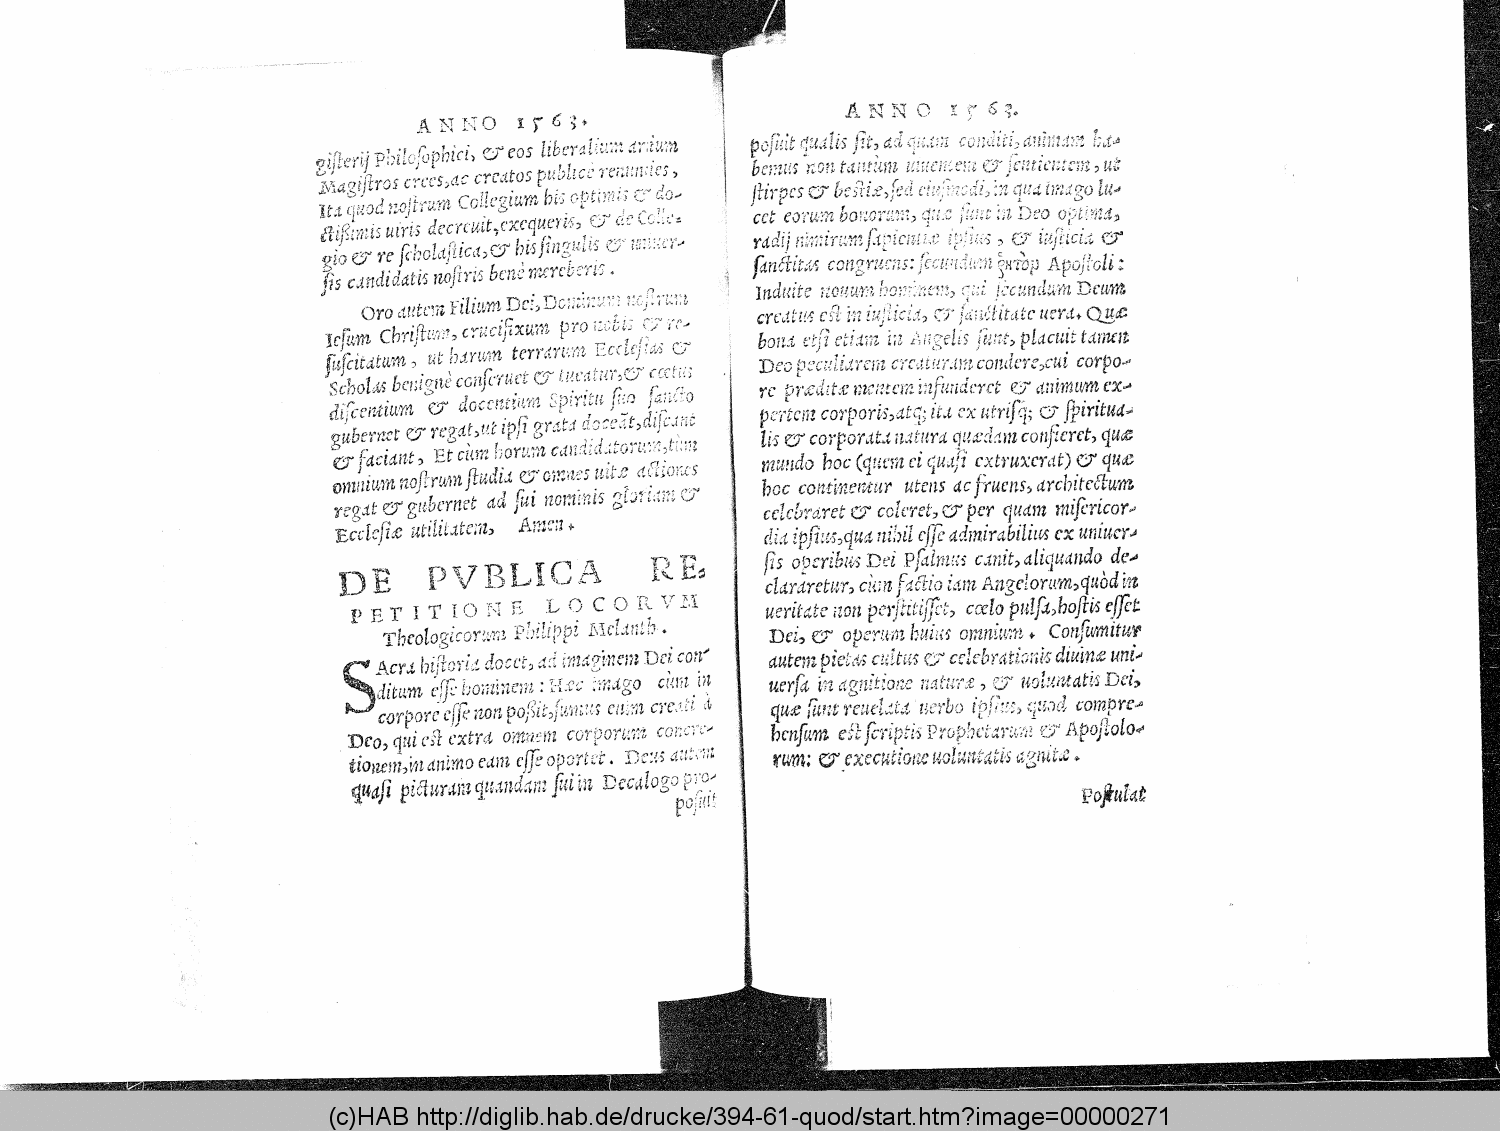 ANNO 1563.
gisterij Philosophici, & eos liberalium artium
Magistros crees, ac creatos publicè renuncies,
Ita quod nostrum Collegium his optimis & do-
ctißimis uiris decreuit, exequeris, & de Colle-
gio & re scholastica, & his singulis & uniuer-
sis candidatis nostris benè mereberis.
Oro autem Filium Dei, Dominum nostrum
Iesum Christum, crucifixum pro nobis & re-
suscitatum, ut harum terrarum Ecclesias &
Scholas benignè conseruet & tueatur, & cœtus
discentium & docentium Spiritu suo sancto
gubernet & regat, ut ipsi grata doceãt, discant
& faciant, Et cùm horum candidatorum, tùm
omnium nostrum studia & omnes uitæ actiones
regat & gubernet ad sui nominis gloriam &
Ecclesiæ utilitatem, Amen.
DE PVBLICA RE-
PETITIONE LOCORVM
Theologicorum Philippi Melanth.
SAcra historia docet, ad imaginem Dei con-
ditum esse hominem: Hæc imago cùm in
corpore esse non poßit, sumus enim creati à
Deo, qui est extra omnem corporum concre-
tionem, in animo eam esse oportet. Deus autem
quasi picturam quandam sui in Decalogo pro-
posuit
ANNO 1563.
posuit qualis sit, ad quam conditi, animam ha-
bemus non tantùm uiuentem & sentientem, ut
stirpes & bestiæ, sed eiusmodi, in qua imago lu-
cet eorum bonorum, quæ sunt in Deo optima,
radij nimirum sapientiæ ipsius, & iusticia &
sanctitas congruens: secundum Apostoli:
Induite nouum hominem, qui secundum Deum
creatus est in iusticia, & sanctitate uera. Quæ
bona etsi etiam in Angelis sunt, placuit tamen
Deo peculiarem creaturam condere, cui corpo-
re præditæ mentem infunderet & animum ex-
pertem corporis, atq; ita ex utrisq; & spiritua-
lis & corporata natura quædam confieret, quæ
mundo hoc (quem ei quasi extruxerat) & quæ
hoc continentur utens ac fruens, architectum
celebraret & coleret, & per quam misericor-
dia ipsius, qua nihil esse admirabilius ex uniuer-
sis operibus Dei Psalmus canit, aliquando de-
clararetur, cùm factio iam Angelorum, quòd in
ueritate non perstitisset, cœlo pulsa, hostis esset
Dei, & operum huius omnium. Consumitur
autem pietas cultus & celebrationis diuinæ uni-
uersa in agnitione naturæ, & uoluntatis Dei,
quæ sunt reuelata uerbo ipsius, quod compre-
hensum est scriptis Prophetarum & Apostolo-
rum: & executione uoluntatis agnitæ.
Postulat
(c)HAB http://diglib.hab.de/drucke/394-61-quod/start.htm?image=00000271